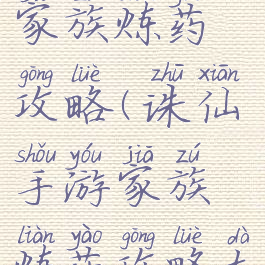 家族炼药
gōng lüè zhū xiān
攻略(诛仙
shǒu yóu jiā zú
手游家族
liàn yào gōng lüè dà
炼药攻略大